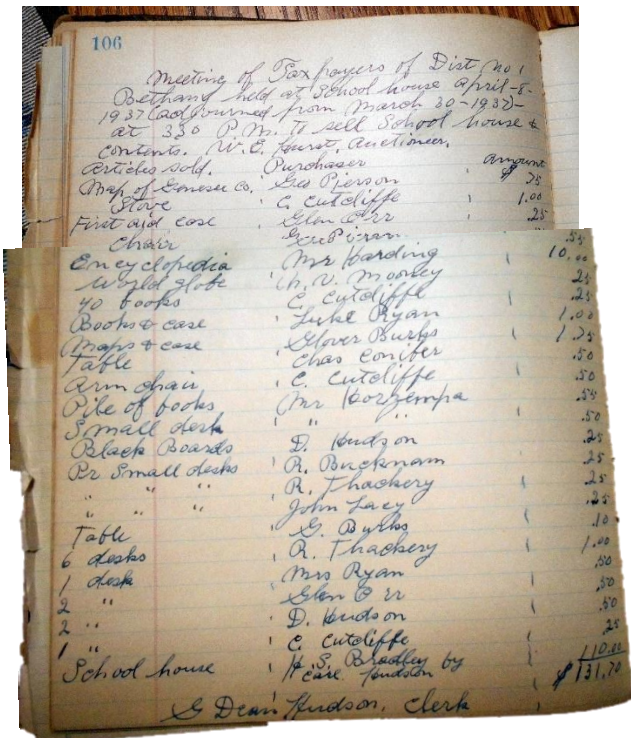 106
Meeting of Tax payers of Dist No 1
Bethany held at School house April-8-
1937 (adjourned from March 30-1937)-
at 330 P.M. to sell School house &
contents. W.E. Hurst, Auctioneer.
Articles sold. Purchaser amount
Map of Genesee Co. Geo Pierson $ .75
Stove C. Cutcliffe 1.00
First aid case Glen Orr .25
Chair Geo Pierson .55
Encyclopedia Mr Harding 10.00
World globe Mooney .25
40 books C. Cutcliffe .25
Books & case Luke Ryan 1.00
Maps & case Glover Burks 1.25
Table Chas Coniber .50
Arm chair C. Cutcliffe .50
Pile of books Mr .55
Small desk " " .50
Black Boards D. Hudson .25
Pr. Small desks R. Bucknam .25
" " " R. Thackery .25
" " " John Lacy .25
Table G. Burks .10
6 desks R. Thackery 1.00
1 desk Mrs Ryan .50
2 " Glen Orr .50
2 " D. Hudson .50
1 " C. Cutcliffe .25
School house H.S. Bradley by 110.00
care Hudson $131.70
G Dean Hudson, Clerk